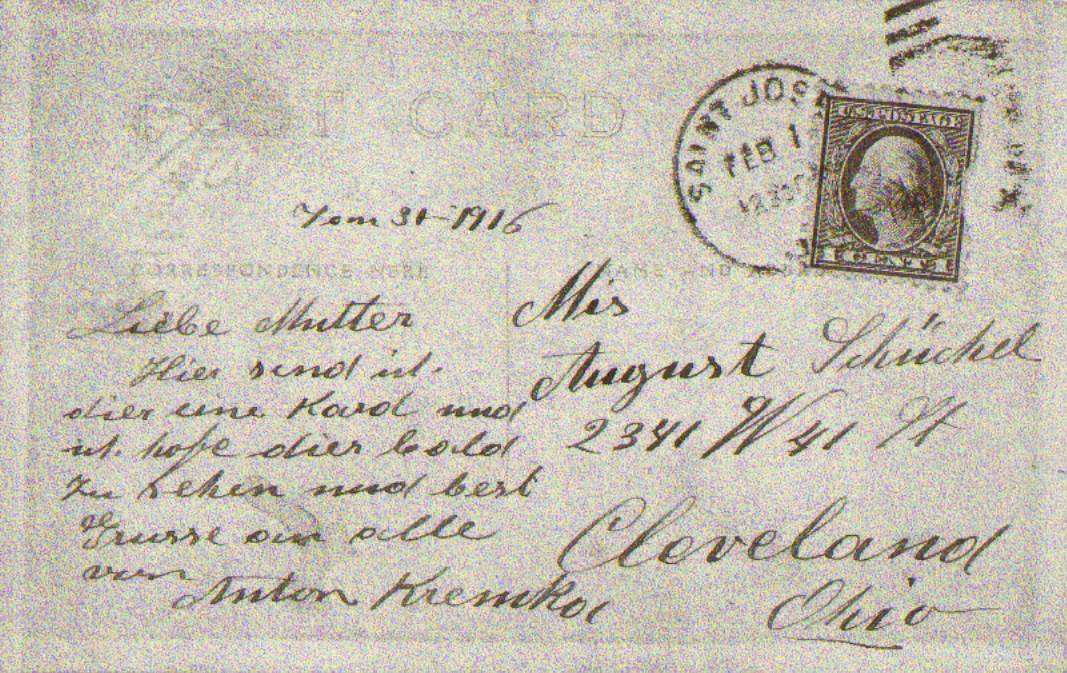 POST CARD
SAINT JOSE
FEB 1
1230
Jan 31-1916
CORRESPONDENCE HERE
NAME AND
Liebe Mutter
Hier send ich
dier eine Kard und
ich hoffe dier bald
zu sehen und best
Grusse an alle
von
Anton
Mis
August Schückel
2341 W 41 St
Cleveland
Ohio